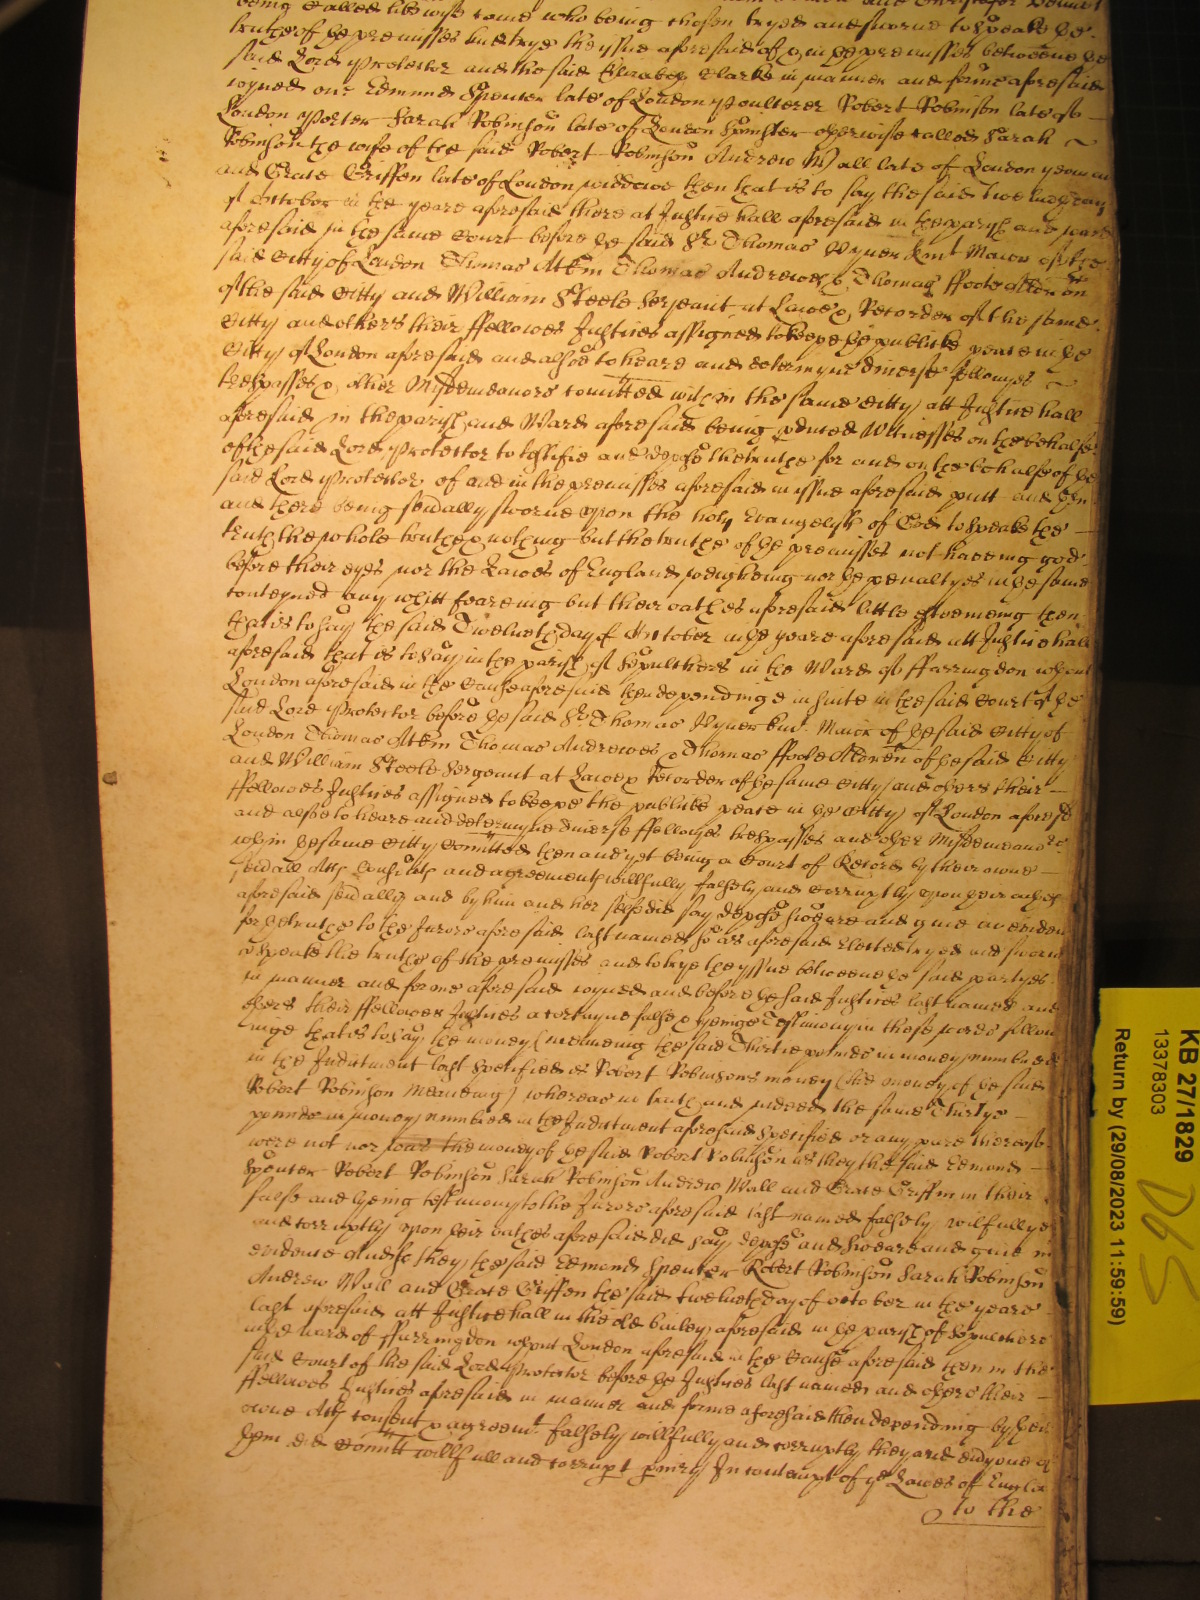 being called likewise come who being chosen tryed and sworne to speake the
truthe of the premisses and trye the yssue aforesaid of & in the premisses betweene the
said Lord Protector and the said Elizabeth Clarke in manner and forme aforesaid
ioyned one Edmund Spencer late of London Poulterer Robert Robinson late of
London Porter Sarah Robinson late of London Spinster otherwise called Sarah
Robinson the wife of the said Robert Robinson Andrew Wall late of London yeoman
and Grace Griffen late of London widdowe then that is to say the said Twelueth day
of October in the yeare aforesaid there at Justice hall aforesaid in the parish and ward
aforesaid in the same Court before the said Sr Thomas Vyner knt Maior of the
said Citty of London Thomas Atkin Thomas Andrewes & Thomas ffoote Aldren
of the said Citty and William Steele Serjeant at Lawe & Recorder of the same
Citty and others their ffellowes Justices assigned to keepe the publike peace in the
Citty of London aforesaid and alsoe to heare and determyne diuerse fellonyes
trespasses & other Misdemeanors comitted within the same Citty att Justice hall
aforesaid in the parish and Ward aforesaid being pduced Witnesses on the behalfe
of the said Lord Protector to testifie and depose the truthe for and on the behalfe of the
said Lord Protector of and in the premisses aforesaid in issue aforesaid putt and then
and there being seually sworne vpon the holy Evangelist of God to speake the
truth the whole truthe & nothing but the truthe of the premisses not haveing god
before their eyes nor the Lawes of England weigheing nor the penaltyes in the same
conteyned any whitt feareing but their oathes aforesaid little esteeming then
that is to say the said Twelueth day of October in the yeare aforesaid att Justice hall
aforesaid that is to say in the parish of Sepulchers in the Ward of ffarringdon without
London aforesaid in the Cause aforesaid then dependinge in suite in the said Court of the
said Lord Protector before the said Sr Thomas Vyner knt Maior of the said Citty of
London Thomas Atkin Thomas Andrewes & Thomas ffoote Aldren of the said Citty
and William Steele Sergeant at Lawe & Recorder of the same Citty and others their
ffellowes Justices assigned to keepe the publike peace in the Citty of London aforesd
and alsoe to heare and determyne diuerse ffellonyes trespasses and other Misdemeanors
within the same Citty Comitted then and yet being a Court of Record by their owne
seuall Acts Consents and agreements willfully falsely and corruptly vpon their oathes
aforesaid seually and by him and her selfe did say depose sweare and giue in euidence
for the truthe to the Jurors aforesaid last named so as aforesaid elected tryed and sworne
to speake the truthe of the premisses and to trye the yssue betweene the said partyes
in manner and forme aforesaid ioyned and before the said Justices last named and
others their ffellowes Justices a certayne false & lyeinge Testimony in these words followinge
that is to say the money (meaneing the said Thirtie pounds in money numbred
in the Indictment last specified) is Robert Robinsons money (the money of the said
Robert Robinson meaneing) whereas in truth and indeed the same Thirtye
pounds in money numbred in the Indictment aforesaid specified or any parte thereof
were not nor was the money of the said Robert Robinson as they the said Edmond
Spencer Robert Robinson Sarah Robinson Andrew Wall and Grace Griffin in their
false and lyeing testimony to the Jurors aforesaid last named falsely wilfullye
and corruptly vpon their oathes aforesaid did say depose and sweare and giue in
euidence And soe they the said Edmond Spencer Robert Robinson Sarah Robinson
Andrew Wall and Grace Griffen the said twelueth day of October in the yeare
last aforesaid att Justice hall in the old bailey aforesaid in the parish of Sepulchers
in the ward of ffarringdon without London aforesaid in the Cause aforesaid then in the
said Court of the said Lord Protector before the Justices last named and others their
ffellowes Justices aforesaid in manner and forme aforesaid then depending by their
owne Act consent & agreemt falsely willfully and corruptly they and euery one of
them did Comitt willfull and corrupt periury In contempt of ye Lawes of England
to the
KB 27/1829
13378303
Return by (29/08/2023 11:59:59)
D95